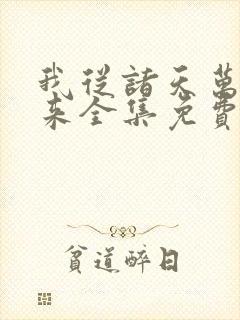 我從諸天萬
來全集免費
貧道醉日